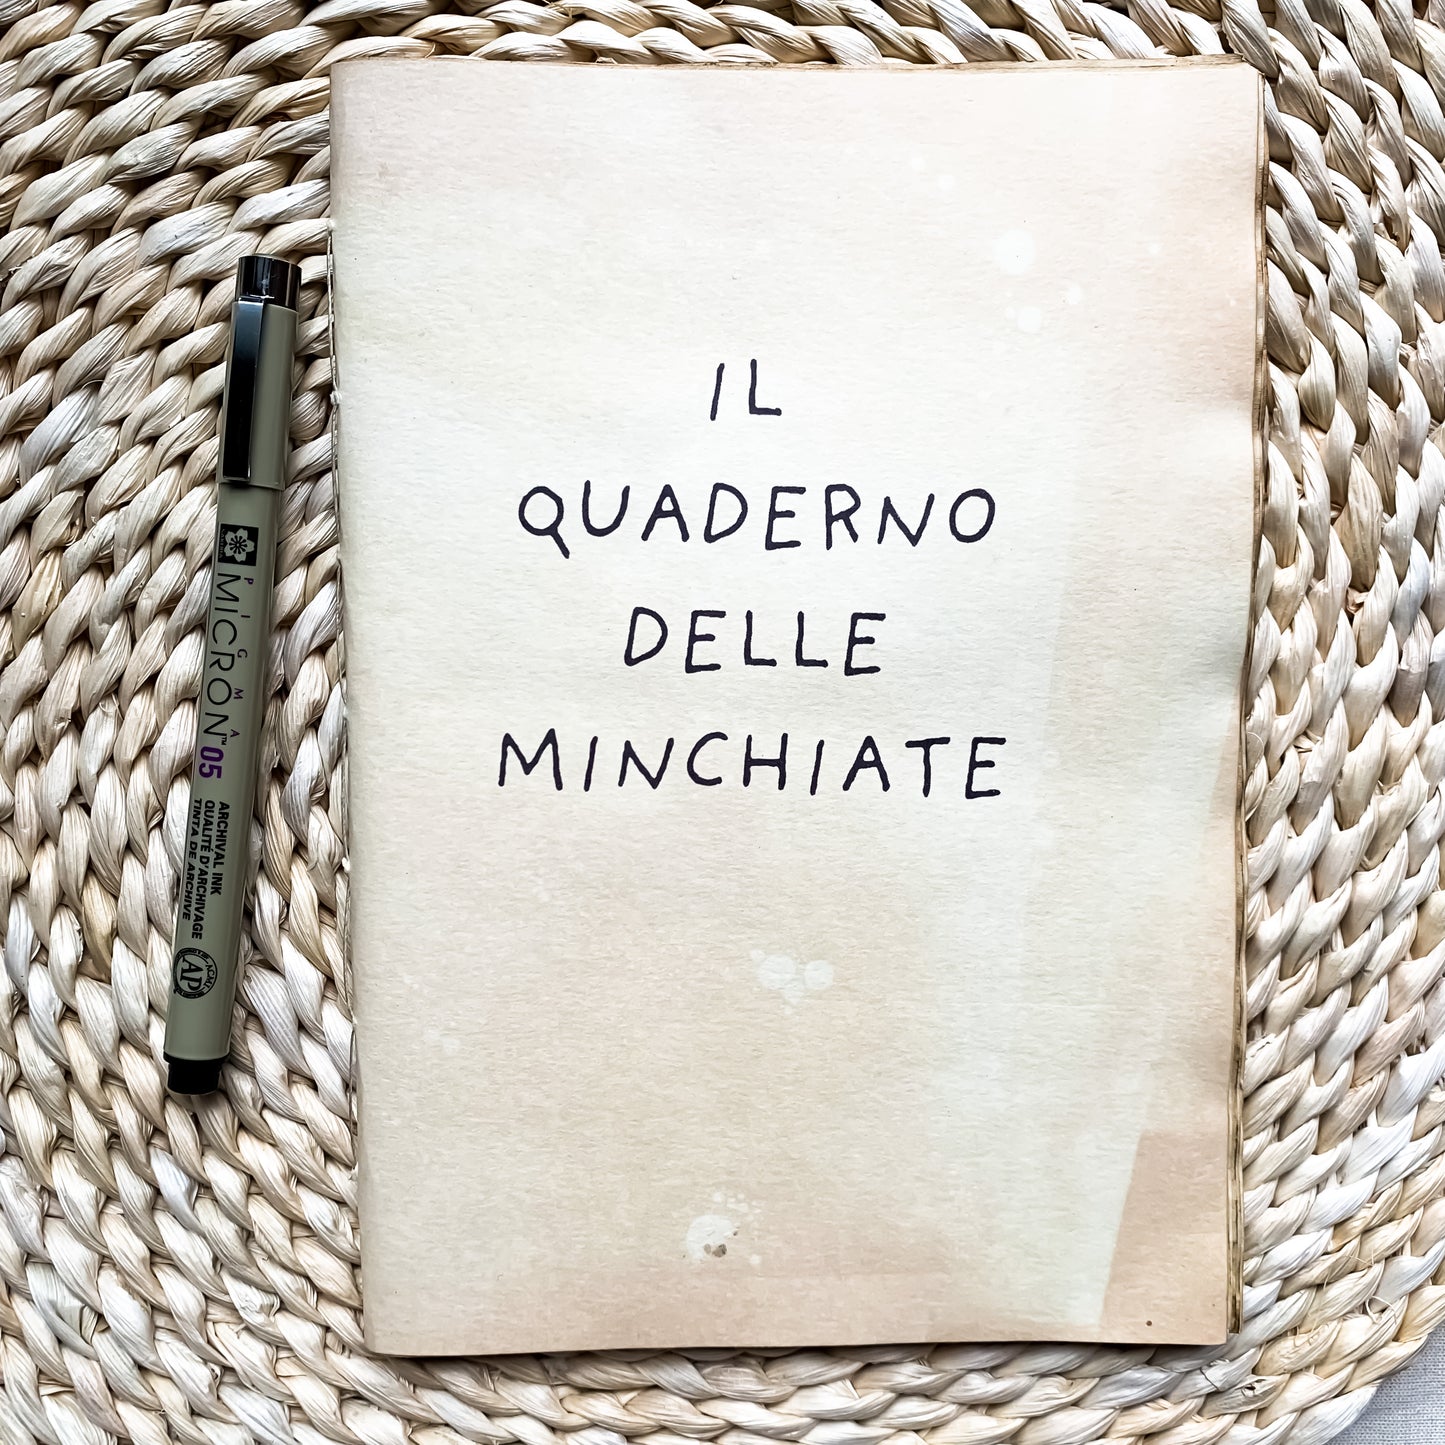 IL
QUADERNO
DELLE
MINCHIATE
PIGMA
MICRON™ 05
ARCHIVAL INK
QUALITÉ D'ARCHIVAGE
TINTA DE ARCHIVE
AP